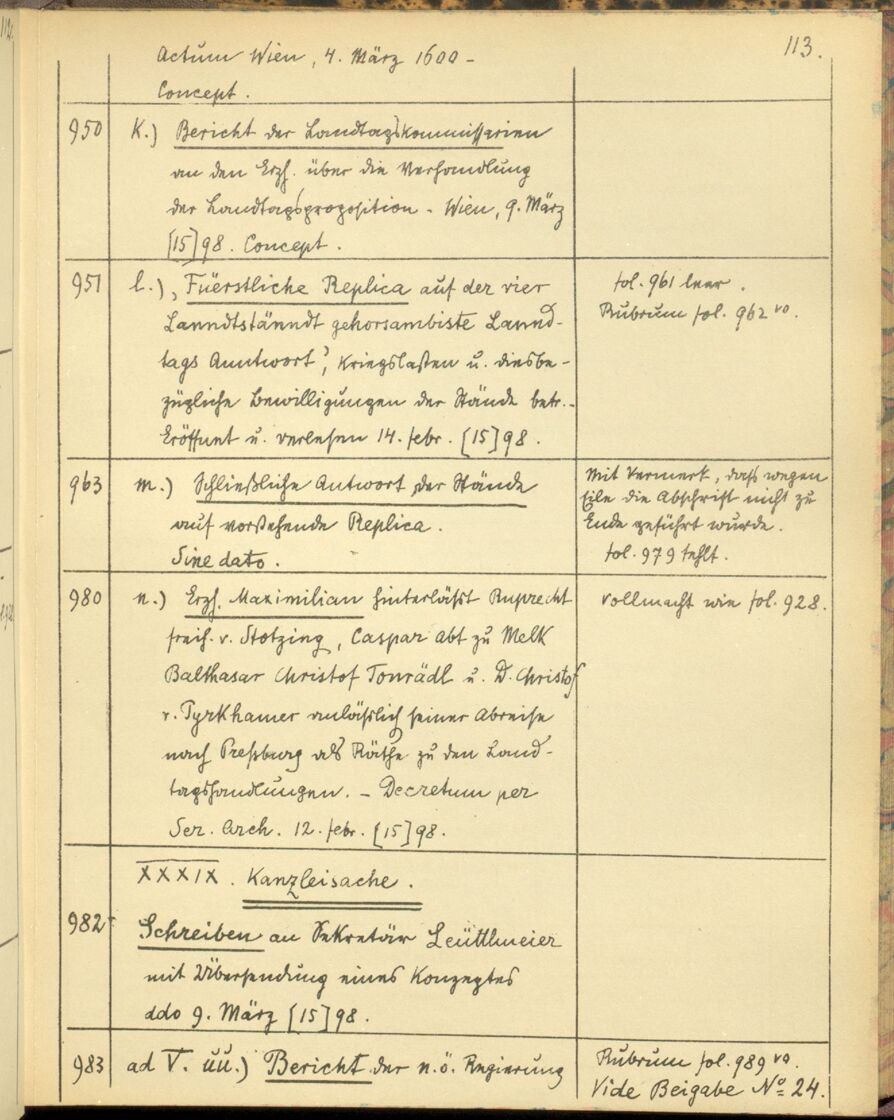 113.
Actum Wien, 4. März 1600 -
Concept.
950 K.) Bericht der Landtagskommissarien
an den Erzh. über die Verhandlung
der Landtagsproposition - Wien, 9. März
[15]98. Concept.
951 l.) „Füerstliche Replica auf der vier
Lanndtstänndt gehorsambiste Lannd-
tags Anntwort", Kriegslasten u. diesbe-
zügliche Bewilligungen der Stände betr. -
Eröffnet u. verlesen 14. febr. [15]98.
fol. 961 leer.
Rubrum fol. 962 vo.
963 m.) Schließliche Antwort der Stände
auf vorstehende Replica.
Sine dato.
Mit Vermerk, daß wegen
Eile die Abschrift nicht zu
Ende geführt wurde.
fol. 979 fehlt.
980 n.) Erzh. Maximilian hinterläßt Ruprecht
freih. v. Stotzing, Caspar Abt zu Melk
Balthasar Christof Tonrädl u. D. Christof
v. Pyrkhamer anläßlich seiner Abreise
nach Preßburg als Räthe zu den Land-
tagshandlungen. - Decretum per
Ser. Arch. 12. febr. [15]98.
Vollmacht wie fol. 928.
XXXIX. Kanzleisache.
982 Schreiben an Sekretär Leüttlmeier
mit Übersendung eines Konzeptes
ddo 9. März [15]98.
983 ad V. üü.) Bericht der n.ö. Regierung
Rubrum fol. 989 vo.
Vide Beigabe No 24.